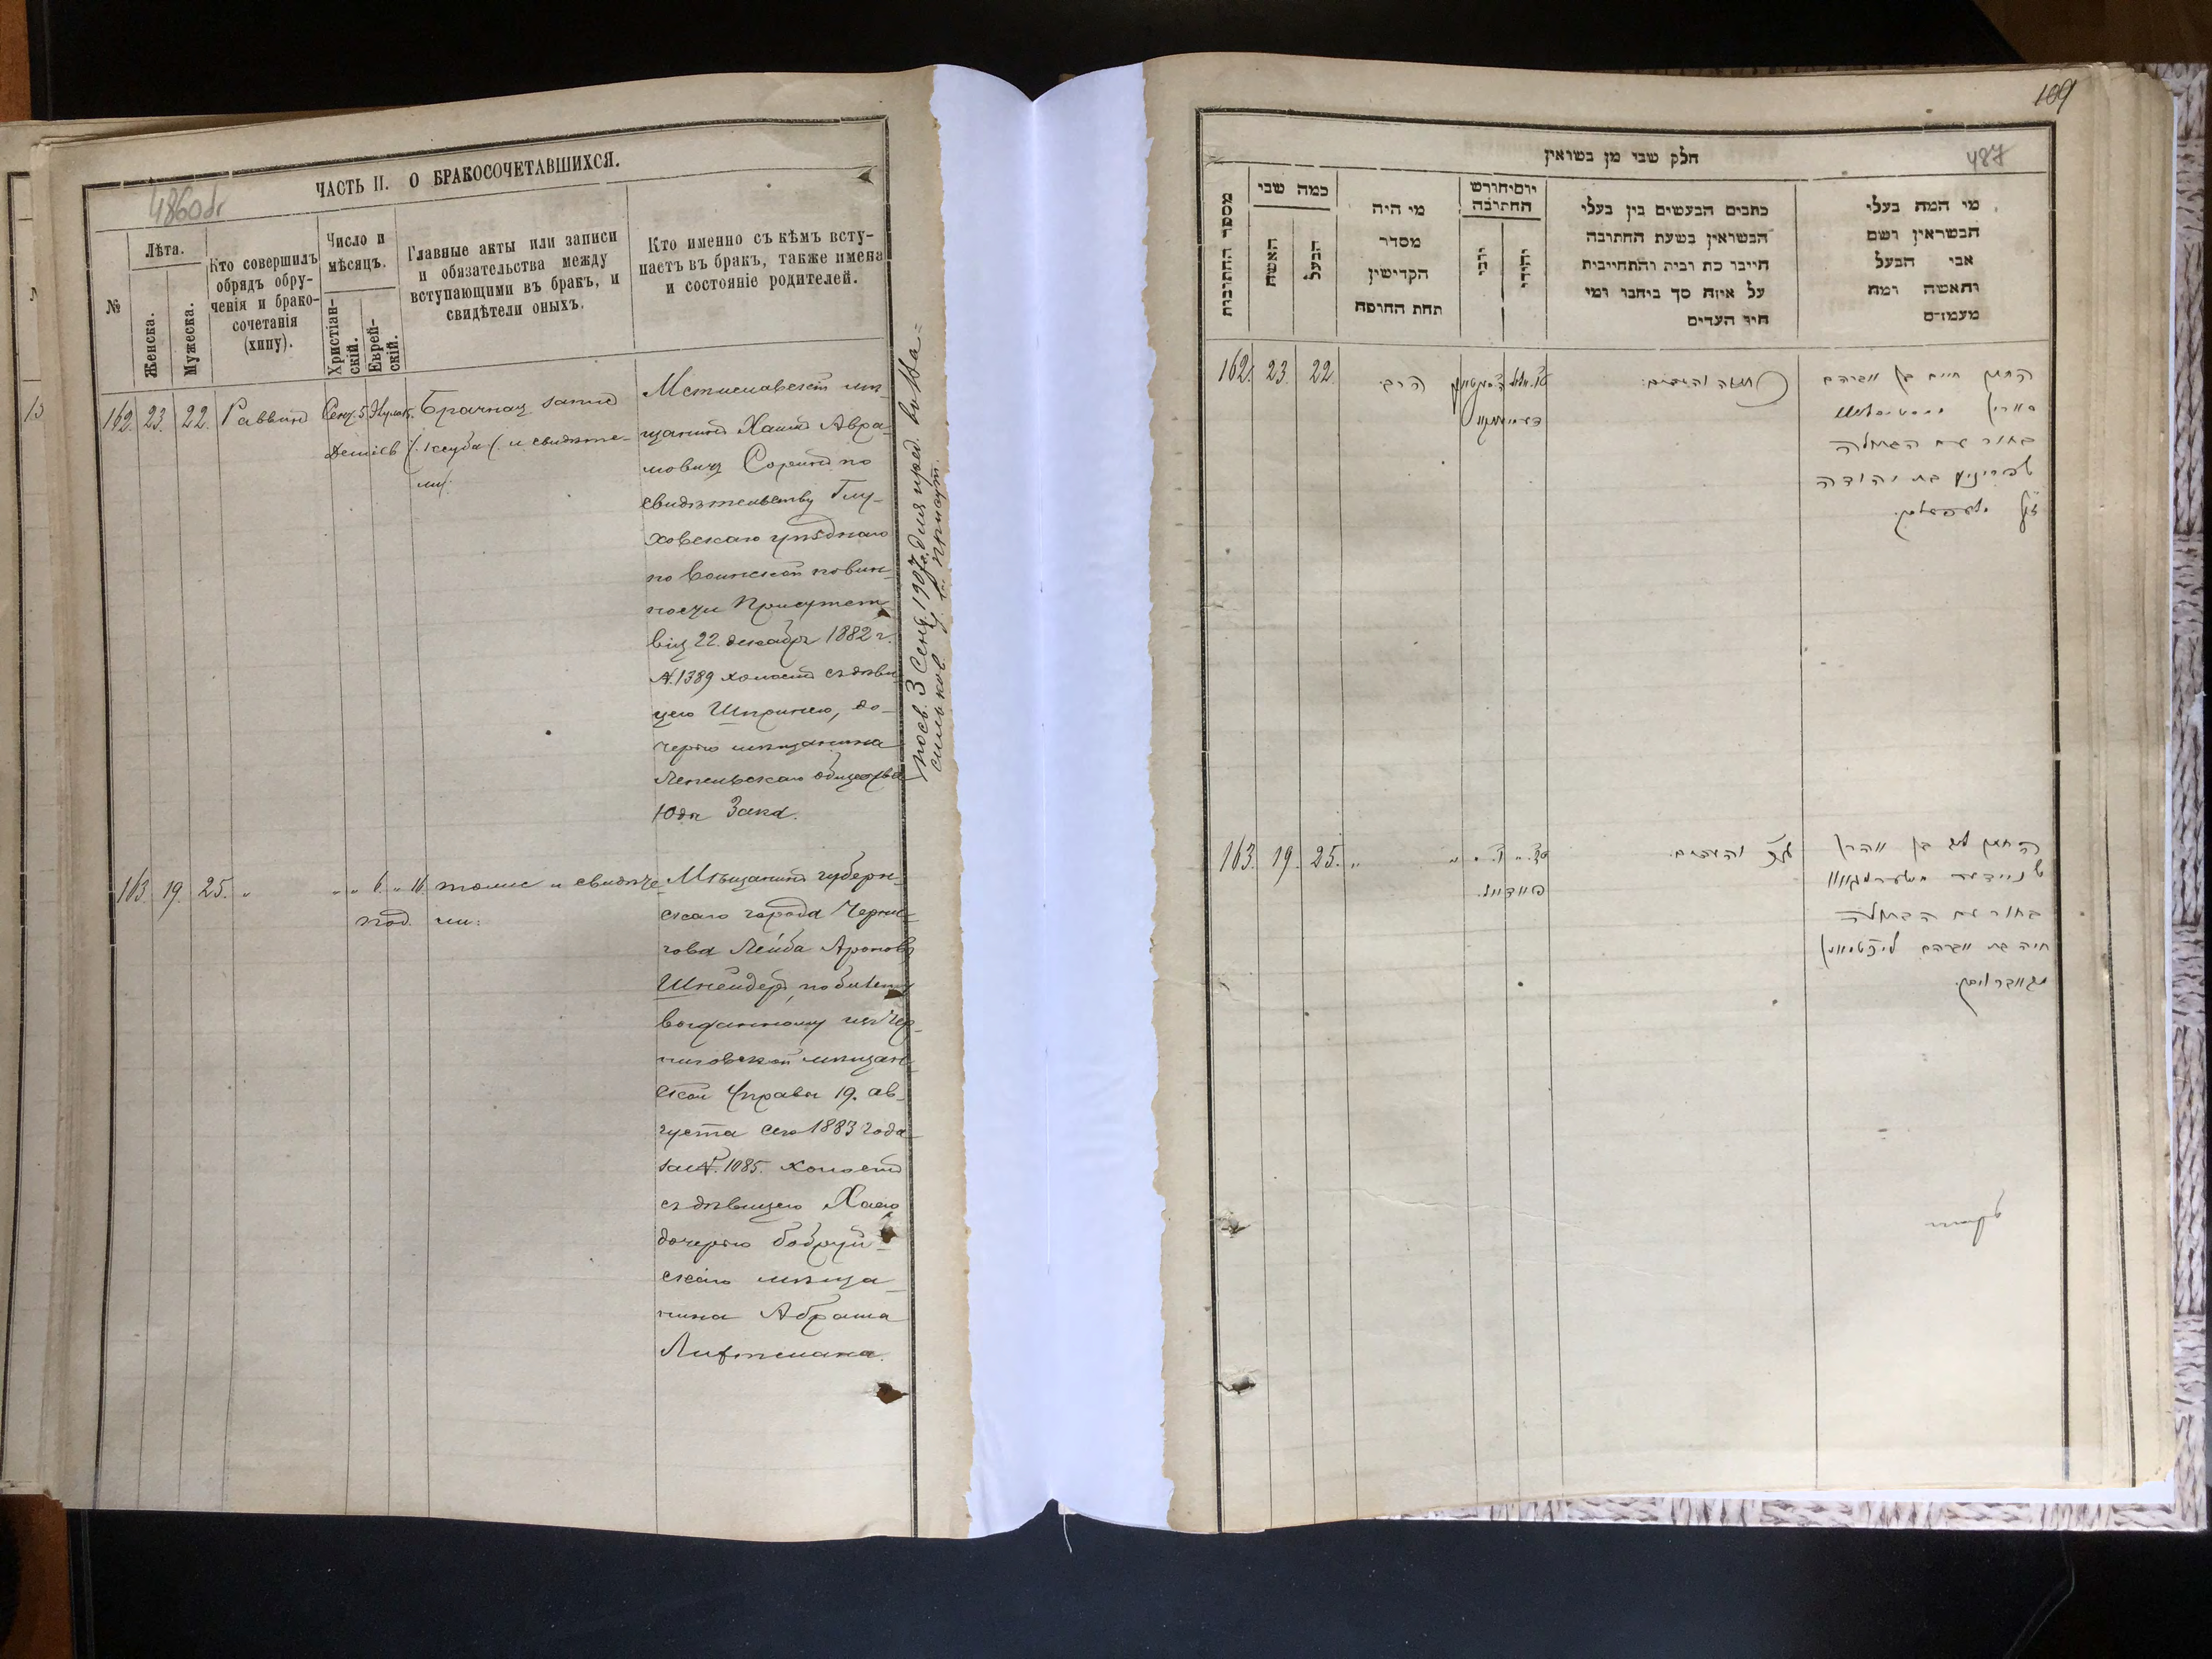 486об
ЧАСТЬ II. О БРАКОСОЧЕТАВШИХСЯ.
№
Лѣта.
Женска.
Мужеска.
Кто совершилъ
обрядъ обру-
ченія и брако-
сочетанія
(хипу).
Число и
мѣсяцъ.
Христіан-
скій.
Еврей-
скій.
Главные акты или записи
и обязательства между
вступающими въ бракъ, и
свидѣтели оныхъ.
Кто именно съ кѣмъ всту-
паетъ въ бракъ, также имена
и состояніе родителей.
162. 23. 22. Раввинъ Сент. 5
Брачная запись
(ксуба) и свидѣте-
ли:
Мстиславскій мѣ-
щанинъ Хаимъ Авра-
мовичъ Соринъ по
свидѣтельству Глу-
ховскаго уѣзднаго
по воинской повин-
ности Присутст
вія 22 декабря 1882 г.
№ 1389 холостъ съ дѣви-
цею Шпринею, до-
черью мѣщанина
Лепельскаго общества
Юды Закса.
посв. 3 Сент. 1907 года для пред. въ Ва=
сильков. у. в. п. присут.
163. 19. 25. " " " 6. " 16. тоже и свидѣте
ли:
Мѣщанинъ губерн-
скаго города Черни-
гова Лейба Ароновъ
Шнейдеръ, по билету
выданному изъ Чер-
ниговской мѣщан-
ской Управы 19. ав-
густа сего 1883 года
за № 1085. холостъ
съ дѣвицею Хаею
дочерью бобруй-
скаго мѣща-
нина Абрама
Лифтмана.
109
487
חלק שני מן נשואין
מספר החתונות
כמה שני
האשה
הבעל
מי היה
מסדר
הקדישין
תחת החופה
יום וחודש
החתונה
נוצרי
יהודי
כתבים הנעשים בין בעלי
הנשואין בשעת החתונה
חייבו כת וכית והתחייבות
על איזה סך ביחבו ומי
היו העדים
מי המה בעלי
הנשואין ושם
אבי הבעל
והאשה ומה
מעמדם
162. 23. 22. הרב
החתן חיים בן אברהם
סורין
בחור עם הבתולה
שפרינצע בת יהודה
163. 19. 25. "
והעדים.
החתן לייב בן אהרן
שניידער
בחור עם הבתולה
חיה בת אברהם ליפטמאן